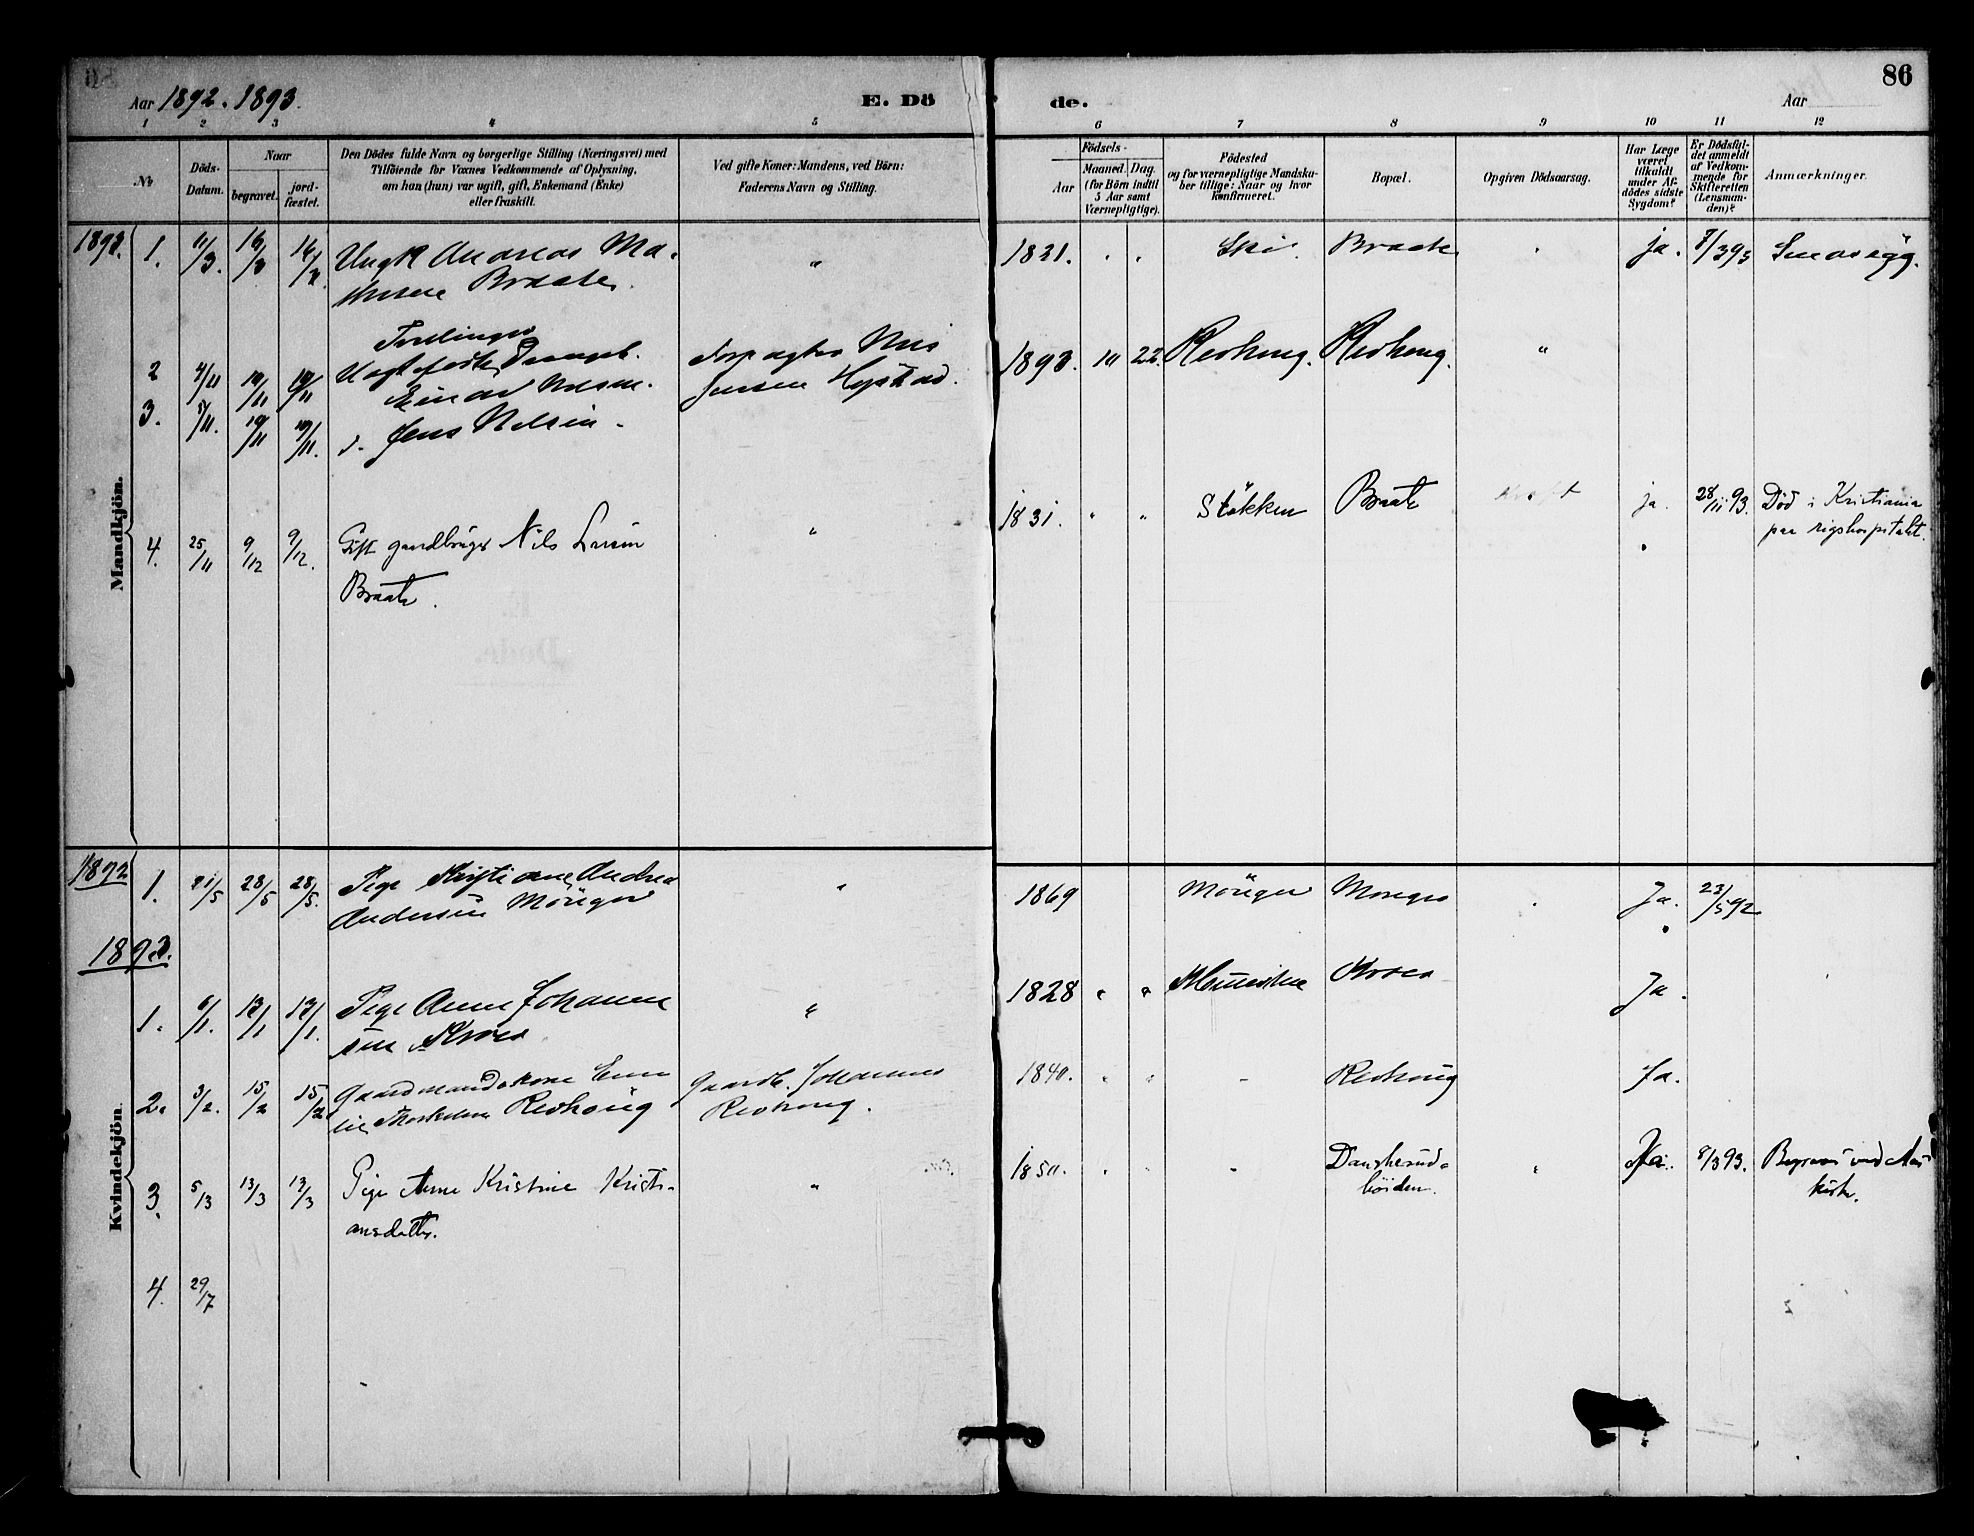 Aar 1892. 1893.
E. Dö
de.
Aar
86
1 2 3 4 5
6 7 8 9 10 11 12
No
Döds-
Datum.
Naar
begravet.
jord-
fæstet.
Den Dödes fulde Navn og borgerlige Stilling (Næringsvei) med
Tilföiende for Voxnes Vedkommende af Oplysning,
om han (hun) var ugift, gift, Enkemand (Enke)
eller fraskilt.
Ved gifte Koner: Mandens, ved Börn:
Faderens Navn og Stilling.
Födsels-
Aar
Maaned. Dag.
(for Börn indtil
5 Aar samt
Værnepligtige).
Födested
og for værnepligtige Mandska-
ber tillige: Naar og hvor
konfirmeret.
Bopæl.
Opgiven Dödsaarsag.
Har Læge
været
tilkaldt
under Af-
dödes sidste
Sygdom?
Er Dödsfal-
det anmeldt
af Vedkom-
mende for
Skifteretten
(Lensman-
den)?
Anmærkninger.
Mandkjön.
1893. 1. 11/3. 16/3 Ungk Andreas Ma-
thisen Braate. " 1821. Ski. Braate ja. 8/3 93
Tvillinger
2 4/11 10/11 10/11
Einar Nilsen.
Forpagter Nils
Jensen
1893. 10 22. Revhoug. Revhoug. "
3. 5/11. 10/11 10/11. d. Jens Nilsen.
4. 25/11 9/12 9/12. Gift gaardbruger Nils
Braate. " 1831. " " Stökken Braate ja. 28/11 93. Död i Kristiania
paa rigshospitalet.
Kvindekjön.
1892 1. 21/5 28/5 28/5. Pige Kristiane Andrea
Andersen Mönger " 1869 Mönger Ja. 23/5 92
1893.
1. 6/1. 13/1 13/1. Pige Anne Johanne
" 1828 " " Ja.
2. 3/2. 15/2 15/2 Gaardmandskone
Revhoug Gaardb. Johannes
Revhoug. 1840. " " - Revhoug Ja.
3. 5/3 13/3 13/3 Pige Anne Kristine Kristi-
ansdatter. " 1850. " " - Danskerud-
höiden. " Ja. 8/3 93. Begravet ved Aas
kirke.
4. 29/7